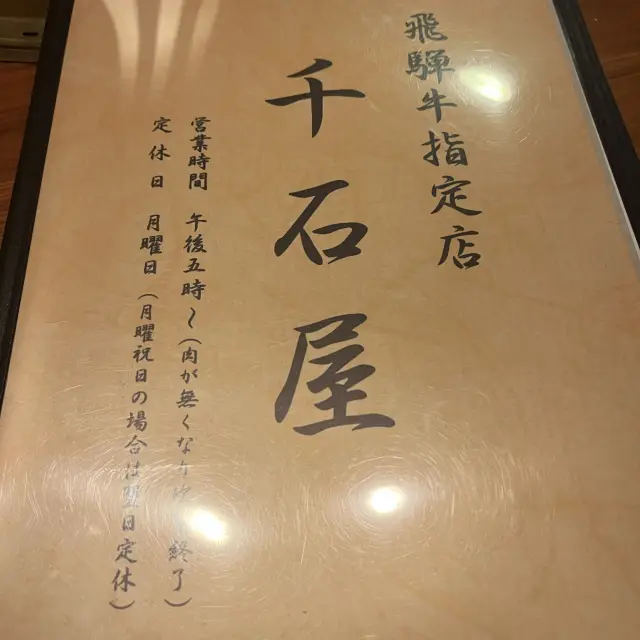 飛騨牛指定店
千石屋
営業時間 午後五時〜(肉が無くなり 終了)
定休日 月曜日(月曜祝日の場合は翌日定休)